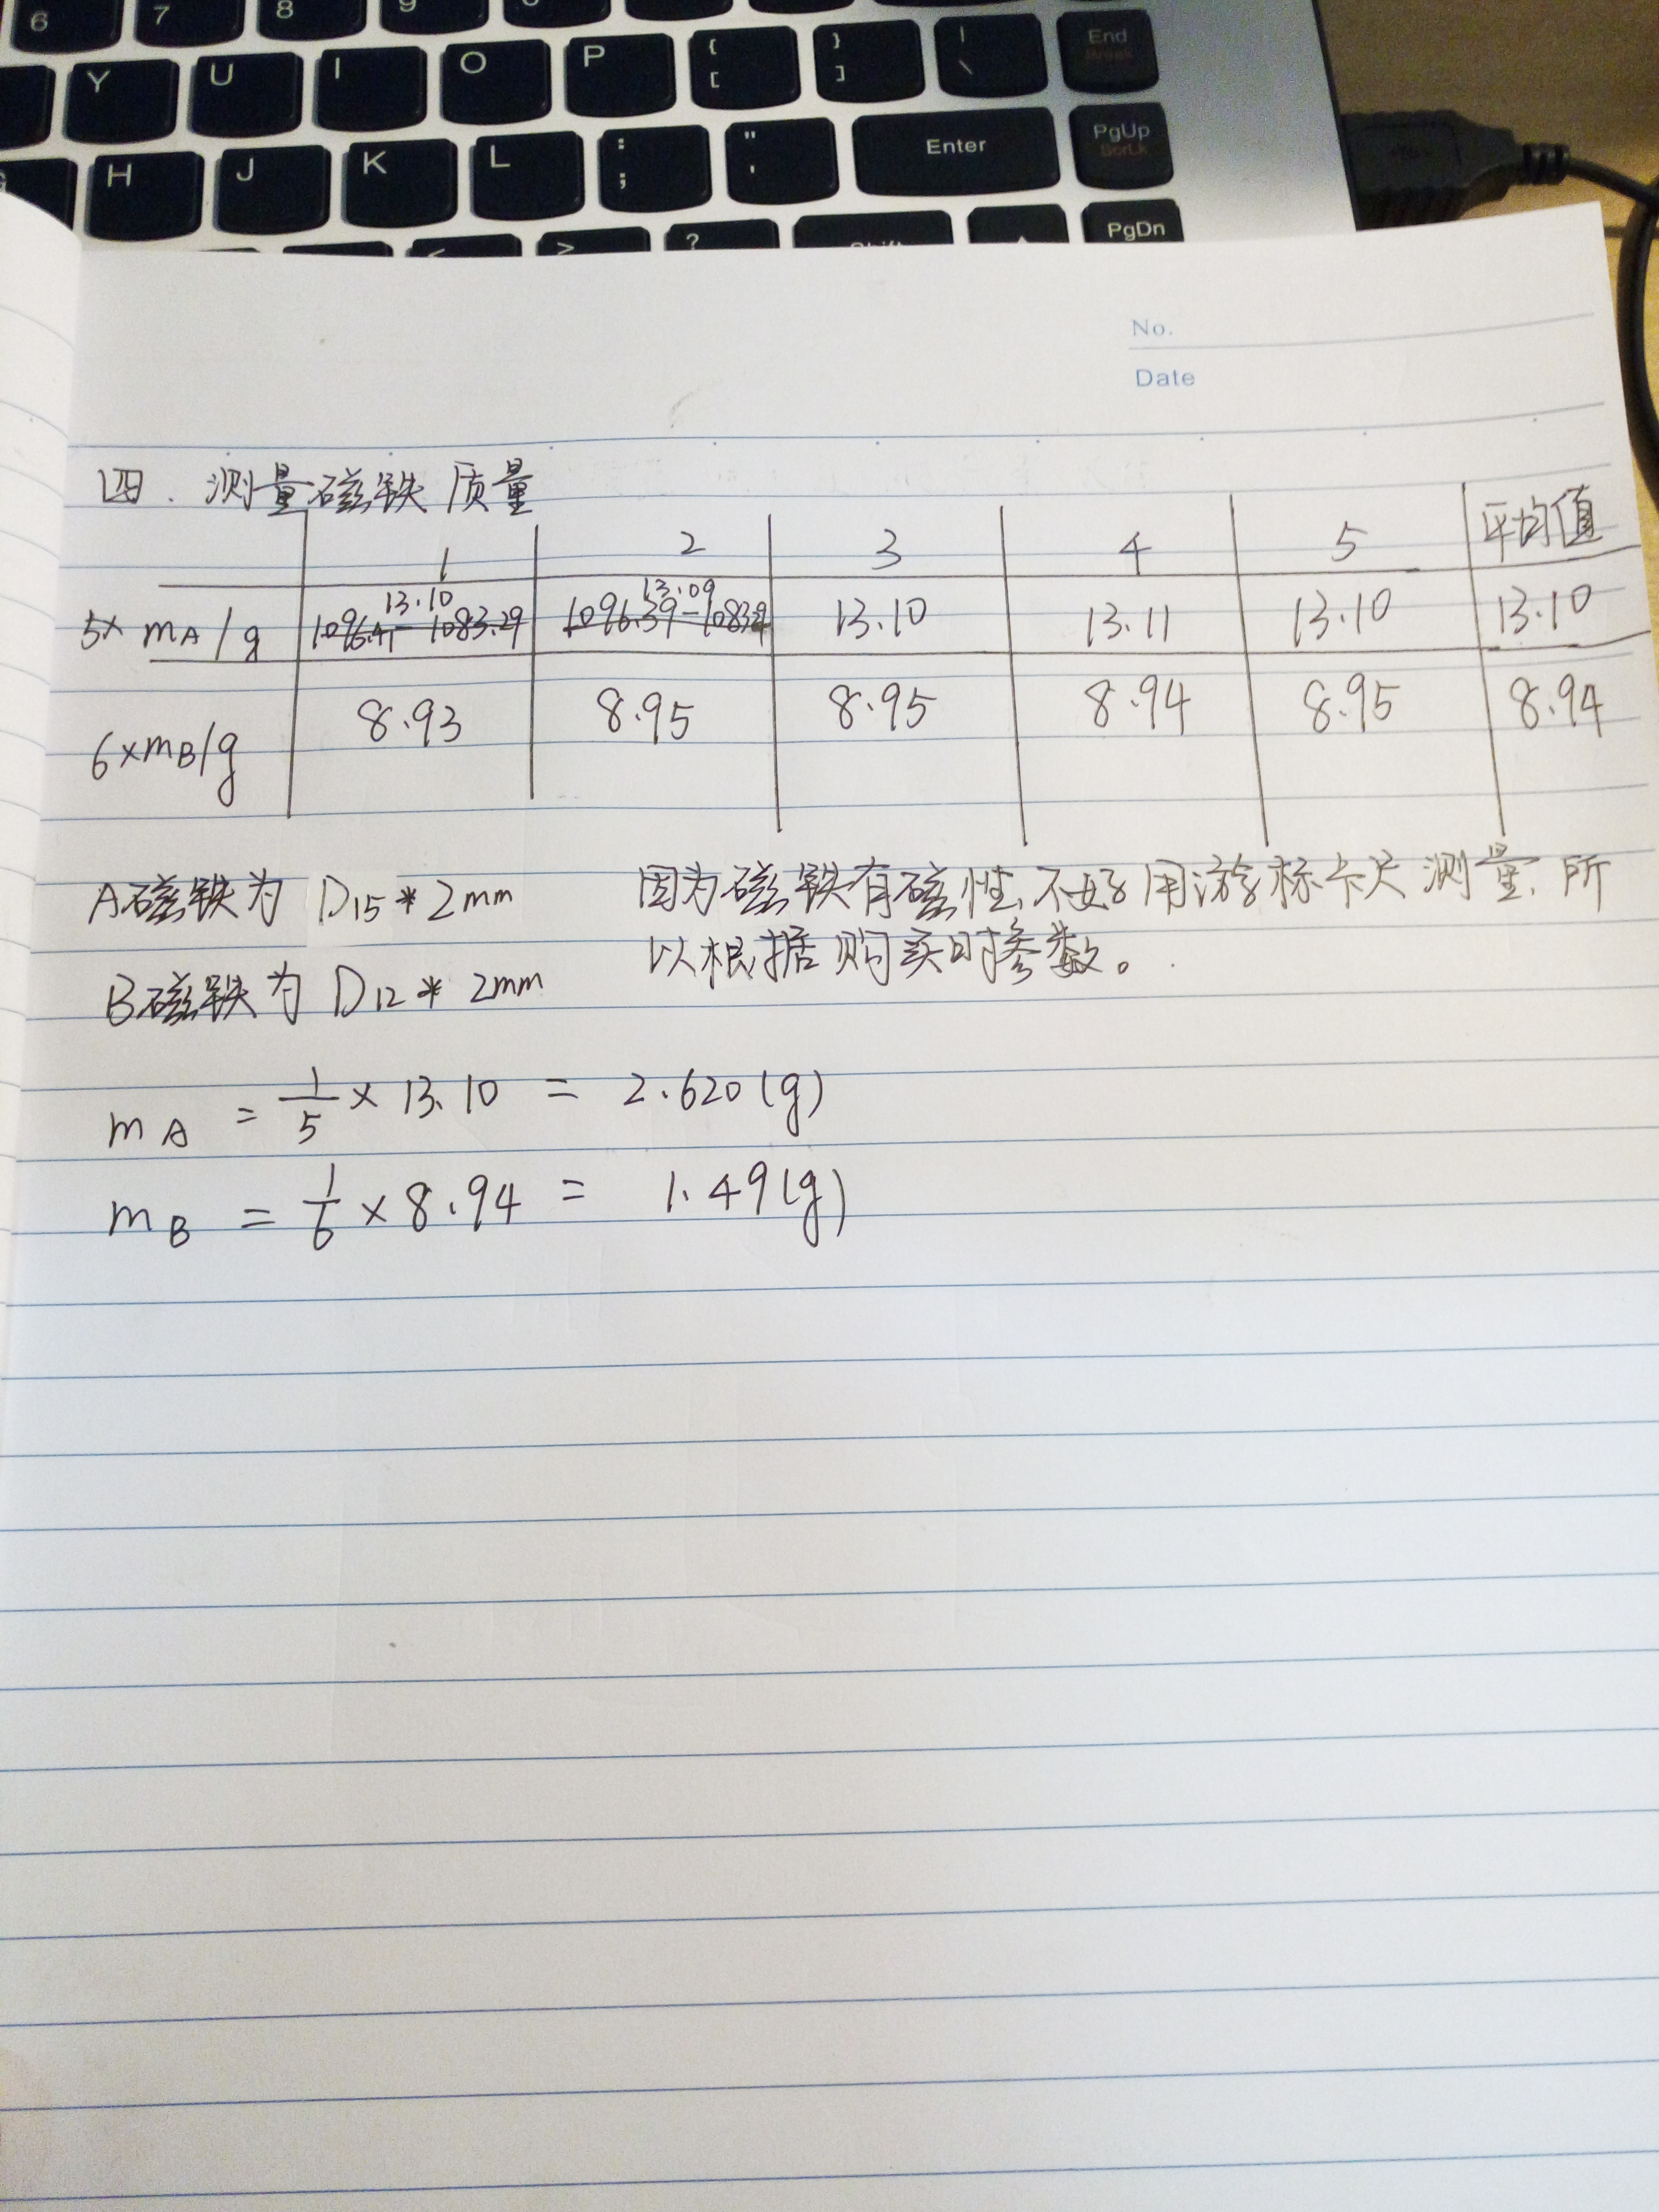 6 7 8 9
Y U I O P { [ } ] | \ End Break
H J K L : ; " ' Enter PgUp ScrLk
< > ? Shift PgDn
No.
Date
四. 测量磁铁质量
1 2 3 4 5 平均值
13.10 13.09
5× mA/g 1096.41-1083.29 1096.39- 13.10 13.11 13.10 13.10
6×mB/g 8.93 8.95 8.95 8.94 8.95 8.94
A磁铁为 D15*2mm 因为磁铁有磁性,不好用游标卡尺测量,所
以根据购买时参数。
B磁铁为 D12*2mm
mA = 1/5 × 13.10 = 2.620(g)
mB = 1/6 × 8.94 = 1.49(g)